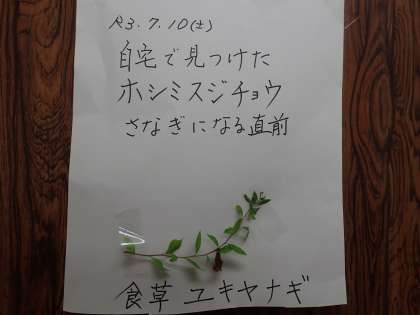 R3.7.10(土)
自宅で見つけた
ホシミスジチョウ
さなぎになる直前
食草 ユキヤナギ